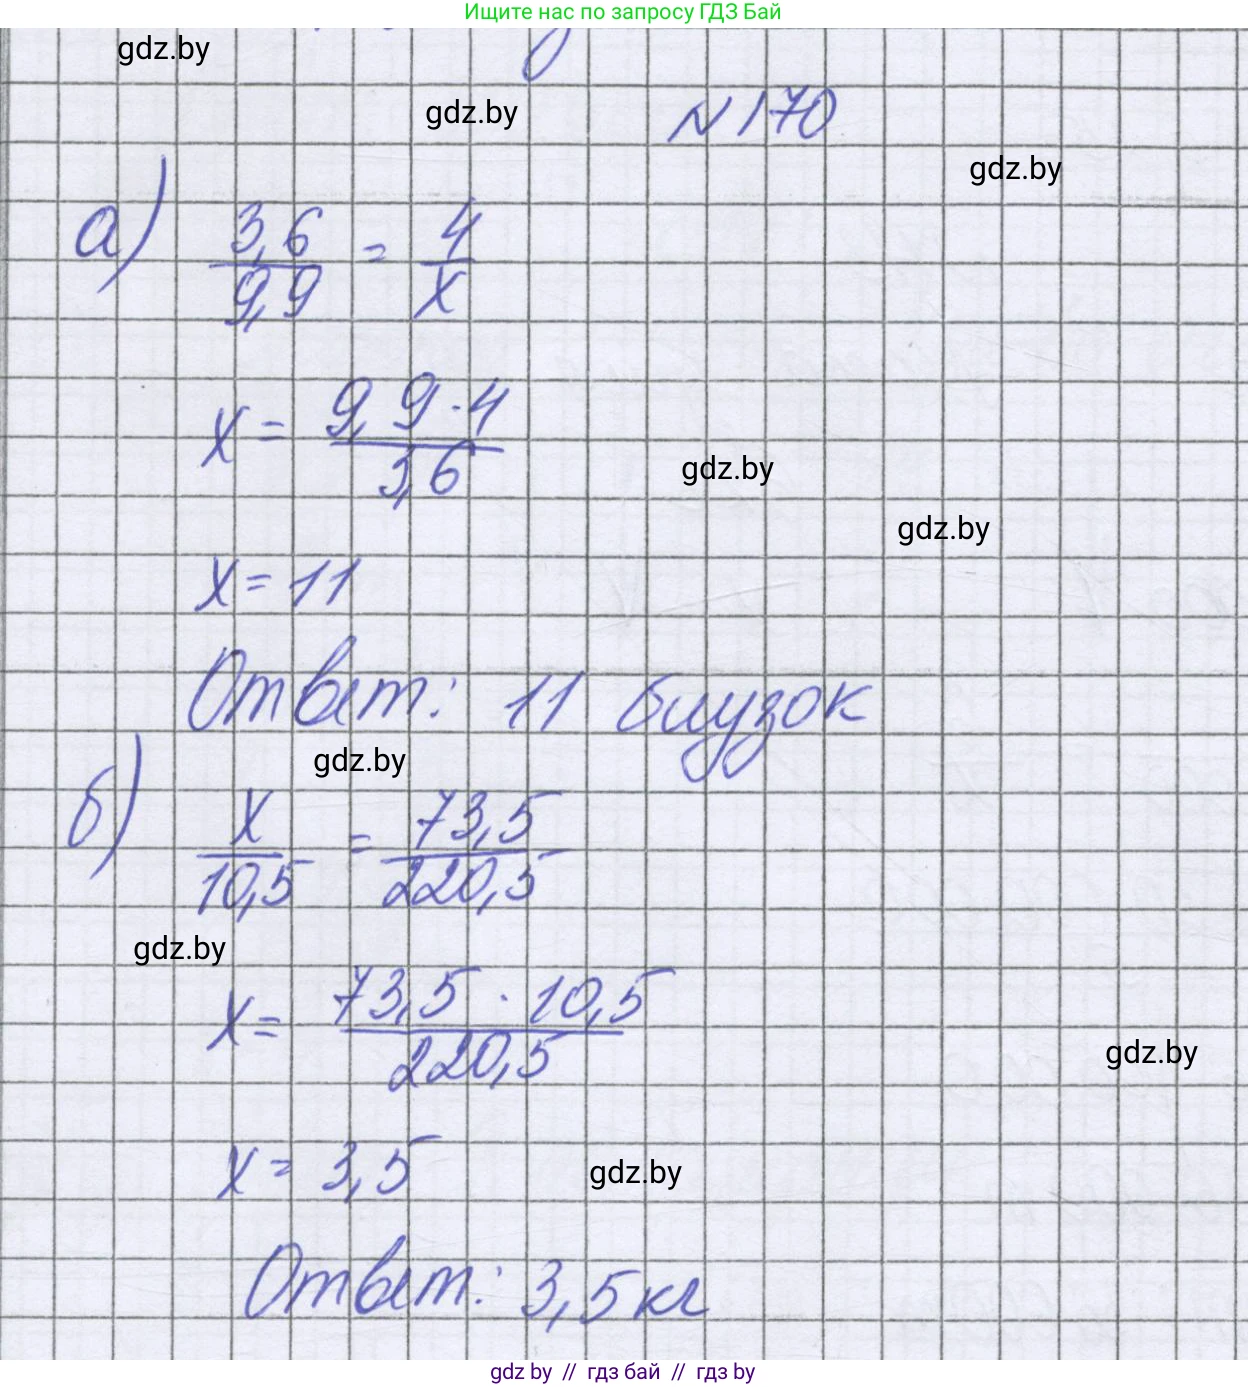 Ищите нас по запросу ГДЗ Бай
gdz.by
gdz.by
N 170
gdz.by
а) 3,6/9,9 = 4/x
x = 9,9·4/3,6
gdz.by
gdz.by
x = 11
Ответ: 11 блузок
gdz.by
б) x/10,5 = 73,5/220,5
gdz.by
x = 73,5 · 10,5/220,5
gdz.by
x = 3,5
gdz.by
Ответ: 3,5 кг
gdz by // гдз бай // гдз by